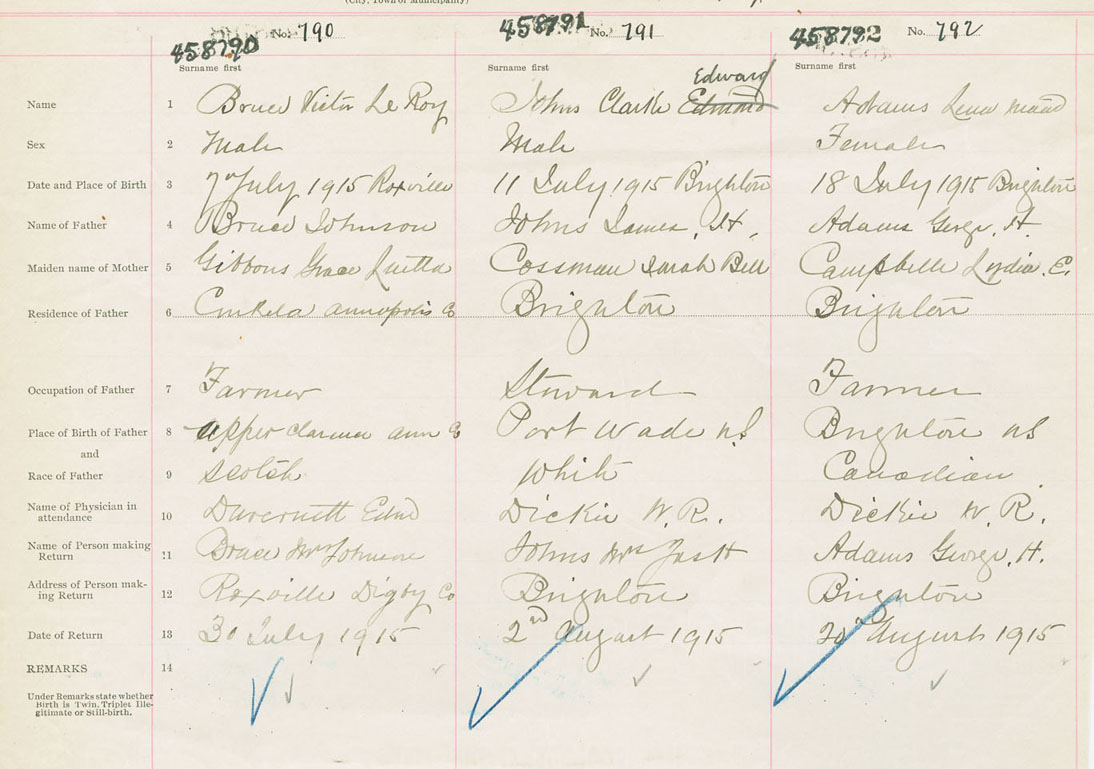 (City, Town or Municipality)
458790 No. 790 458791 No. 791 458792 No. 792
Surname first Surname first Surname first
Edward
Name 1 Bruce Victor Le Roy Johns Clarke Edmond Adams Lena Maud
Sex 2 Male Male Female
Date and Place of Birth 3 7 July 1915 Roxville 11 July 1915 Brighton 18 July 1915 Brighton
Name of Father 4 Bruce Johnson Johns James, H. Adams George, H.
Maiden name of Mother 5 Gibbons Grace Cossman Sarah Bell Campbelle Lydia E.
Residence of Father 6 annapolis Co Brighton Brighton
Occupation of Father 7 Farmer Steward Farmer
Place of Birth of Father 8 upper clarence ann Co Port Wade NS Brighton NS
and
Race of Father 9 Scotch White Canadian
Name of Physician in
attendance 10 Dickie W. R. Dickie W. R.
Name of Person making
Return 11 Bruce Mrs Johnson Johns Mrs Jas H Adams George, H.
Address of Person mak-
ing Return 12 Roxville Digby Co Brighton Brighton
Date of Return 13 30 July 1915 2nd August 1915 20 August 1915
REMARKS 14
Under Remarks state whether
Birth is Twin, Triplet Ille-
gitimate or Still-birth.